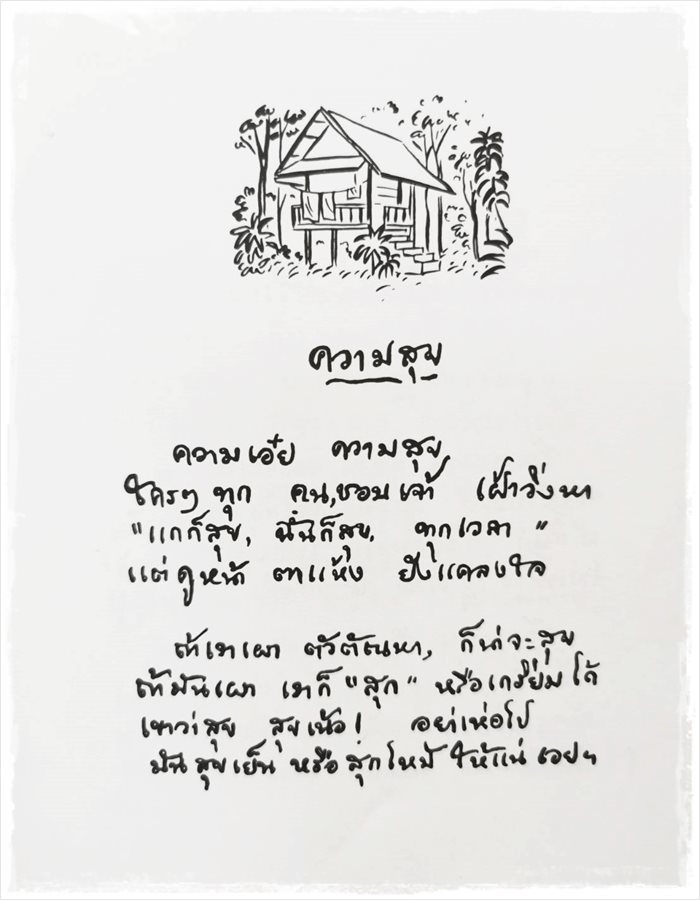 ความสุข
ความเอ๋ย ความสุข
ใครๆ ทุก คน, ชอบเจ้า เฝ้าวิ่งหา
"แกก็สุข, ฉันก็สุข, ทุกเวลา"
แต่ดูหน้า ตาแห้ง ยังแคลงใจ
ถ้าเราเผา ตัวตัณหา, ก็น่าจะสุข
ถ้ามันเผา เราก็ "สุก" หรือเกรียมได้
เขาว่าสุข สุขเน้อ! อย่าเห่อไป
มันสุขเย็น หรือสุกไหม้ ให้แน่เอยฯ